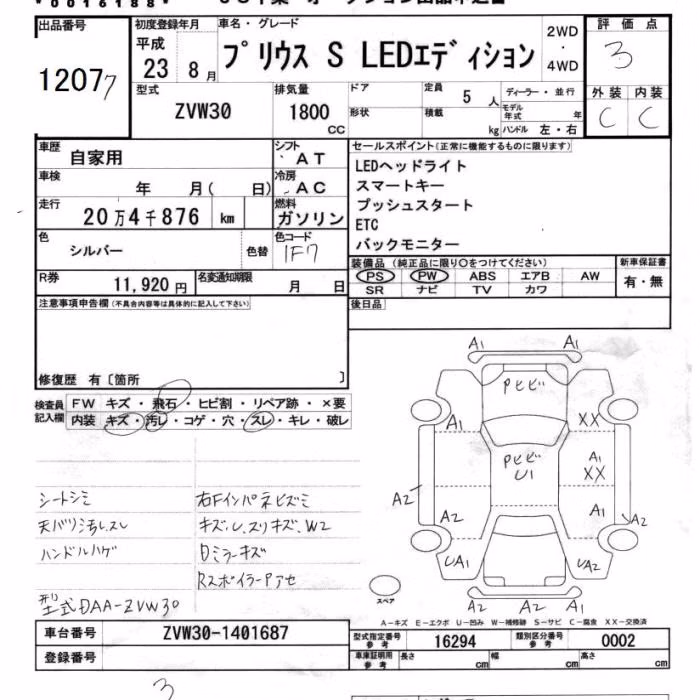 *0016188*
出品番号 初度登録年月 車名・グレード 評価点
12077
平成 23 8月 プリウス S LEDエディション 2WD・4WD 3
型式 排気量 ドア 定員 5人 ディーラー・並行 外装 内装
ZVW30 1800 CC 形状 積載 kg モデル年式 年 C C
ハンドル 左・右
車歴 自家用 シフト AT セールスポイント(正常に機能するものに限ります)
車検 年 月( 日) 冷房 AC LEDヘッドライト
スマートキー
走行 20万4千876 km 燃料 ガソリン プッシュスタート
ETC
色 シルバー 色替 色コード 1F7 バックモニター
装備品(純正品に限り○をつけてください) 新車保証書
R券 11,920円 名変通知期限 月 日 PS PW ABS エアB AW 有・無
SR ナビ TV カワ
注意事項申告欄(不具合内容等は具体的に記入して下さい) 後日品
修復歴 有〔箇所 〕
検査員記入欄 FW キズ・飛石・ヒビ割・リペア跡・×要
内装 キズ・汚レ・コゲ・穴・スレ・キレ・破レ
シートシミ
天バリ汚レ.スレ
ハンドルハゲ
型式DAA-ZVW30
右Fインパネビズミ
キズ.U.スリキズ.W2
Dミラーキズ
RスポイラーPアセ
A1 A1
Pヒビ
A1 XX
Pヒビ
U1
A1
XX
A2 A2 A1 A2
UA1 UA2
A2 A2 A1
スペア
A-キズ E-エクボ U-凹み W-補修跡 S-サビ C-腐食 XX-交換済
車台番号 ZVW30-1401687 型式指定番号 参考 16294 類別区分番号 参考 0002
登録番号 車庫証明用 参考 長さ cm 幅 cm 高さ cm
3